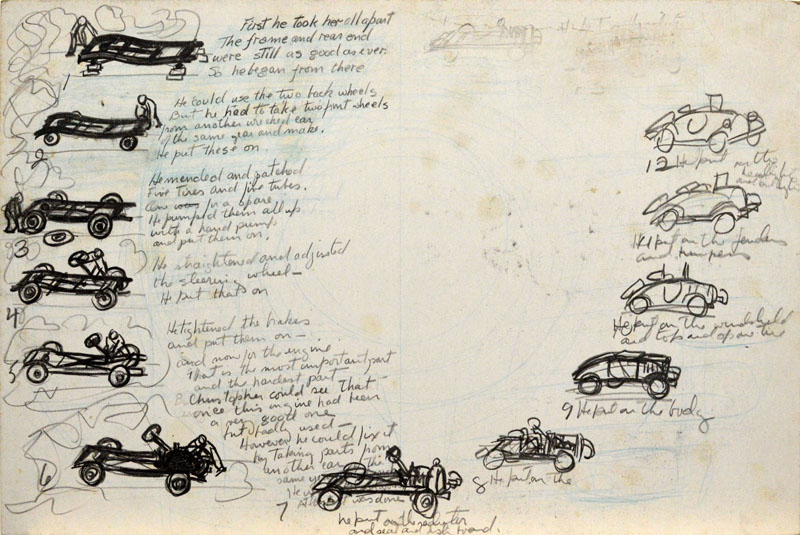 First he took her all apart
The frame and rear end
were still as good as ever.
So he began from there
1
He could use the two back wheels
But he had to take two front wheels
from another wrecked car
of the same year and make.
He put these on.
2
He mended and patched
Five Tires and five tubes.
One for a spare
He pumped them all up
with a hand pump
and put them on.
3
He straightened and adjusted
the steering wheel—
He put that on
4
He tightened the brakes
and put them on—
and now for the engine
That is the most important part
and the hardest part
Christopher could see that
once this engine had been
a very good one
but badly used—
However he could fix it
by taking parts from
another car of the
same
He
was done
5
6
7
he put on the radiator
and seat and dash board.
8 He put on the
9 He put on the body
He put on the windshield
and top and spare tire
11 He put on the fenders
and bumpers
12 He put on the